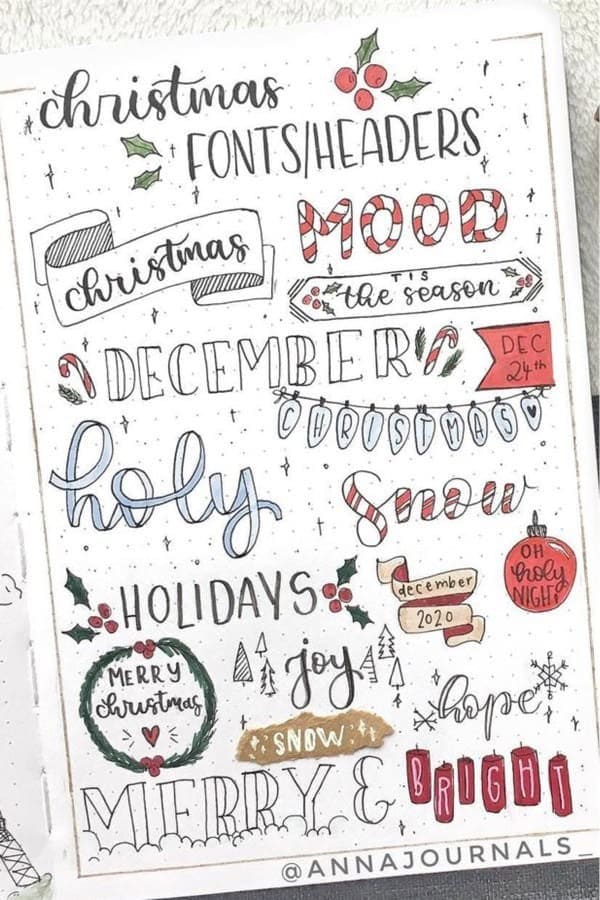 christmas
FONTS/HEADERS
christmas
MOOD
TIS
the season
DECEMBER
DEC
24th
CHRISTMAS
holy
snow
OH
holy
NIGHT
HOLIDAYS
december
2020
MERRY
christmas
joy
hope
SNOW
MERRY & BRIGHT
@ANNAJOURNALS_